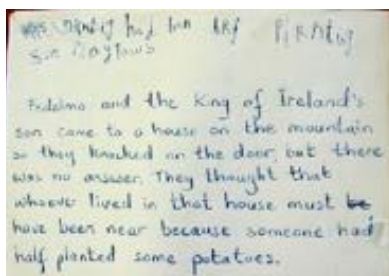 had
Fedelma and the King of Ireland's
son came to a house on the mountain
so they knocked on the door, but there
was no answer. They thought that
whoever lived in that house must be
have been near because someone had
half planted some potatoes.